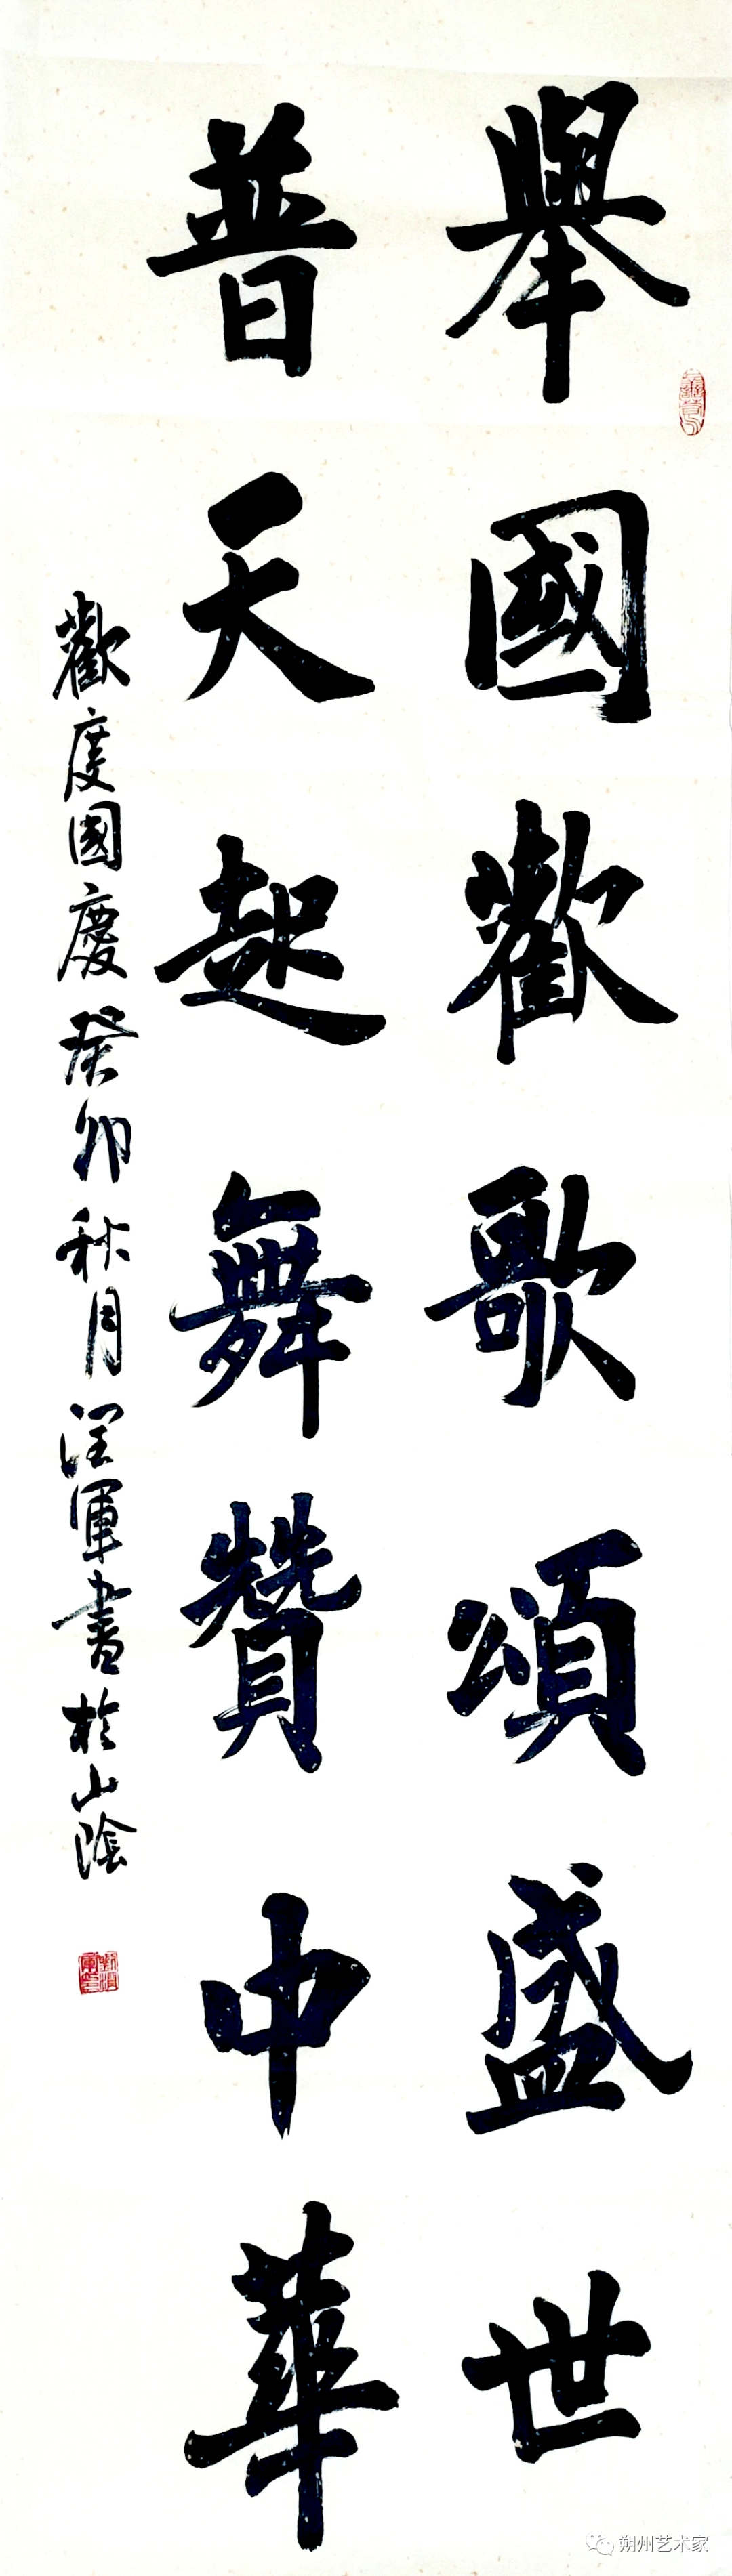 舉國歡歌頌盛世
普天起舞贊中華
歡度國慶癸卯秋月潤軍書於山陰
朔州艺术家